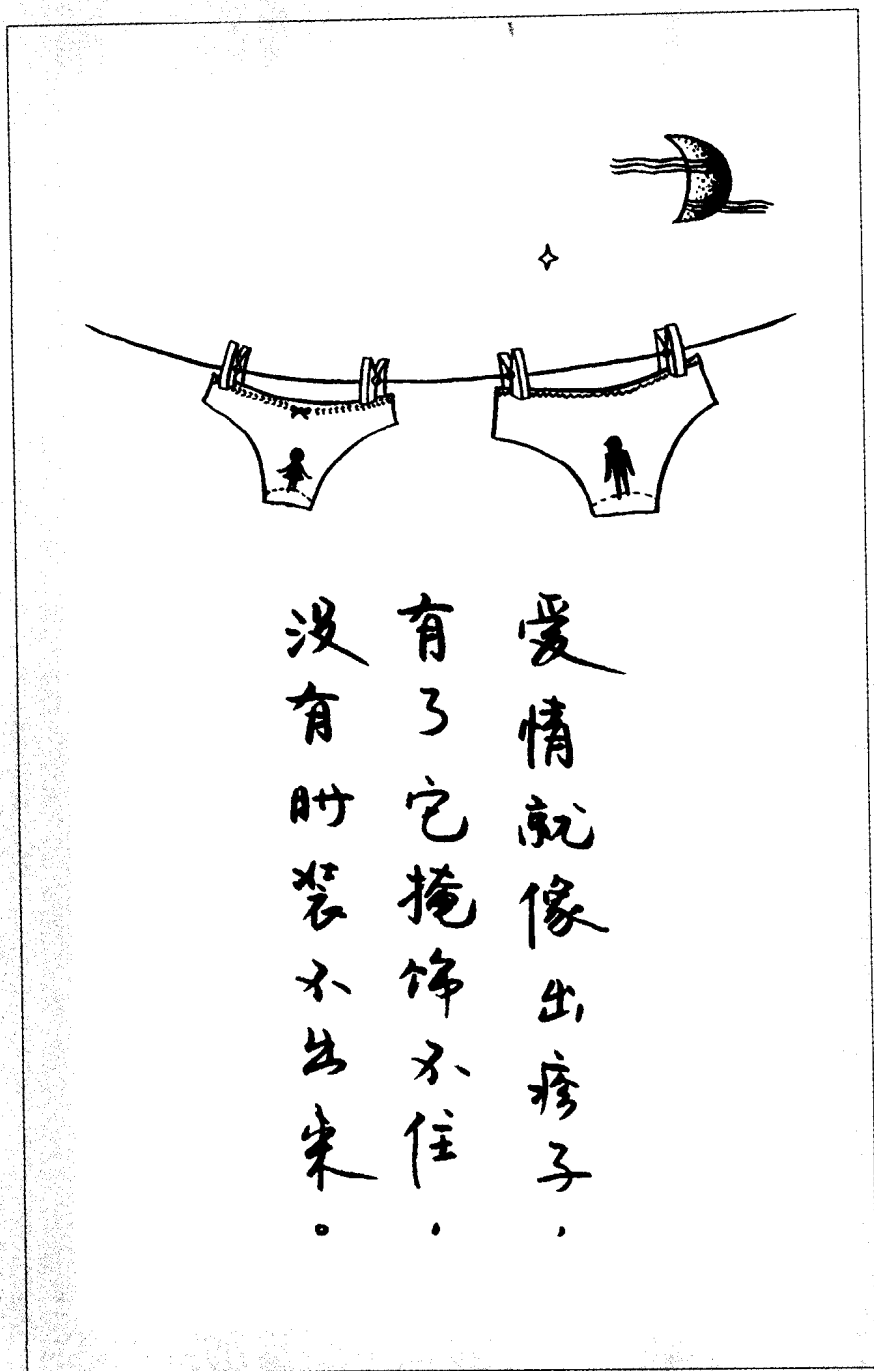 爱情就像出疹子，
有了它掩饰不住，
没有时装不出来。